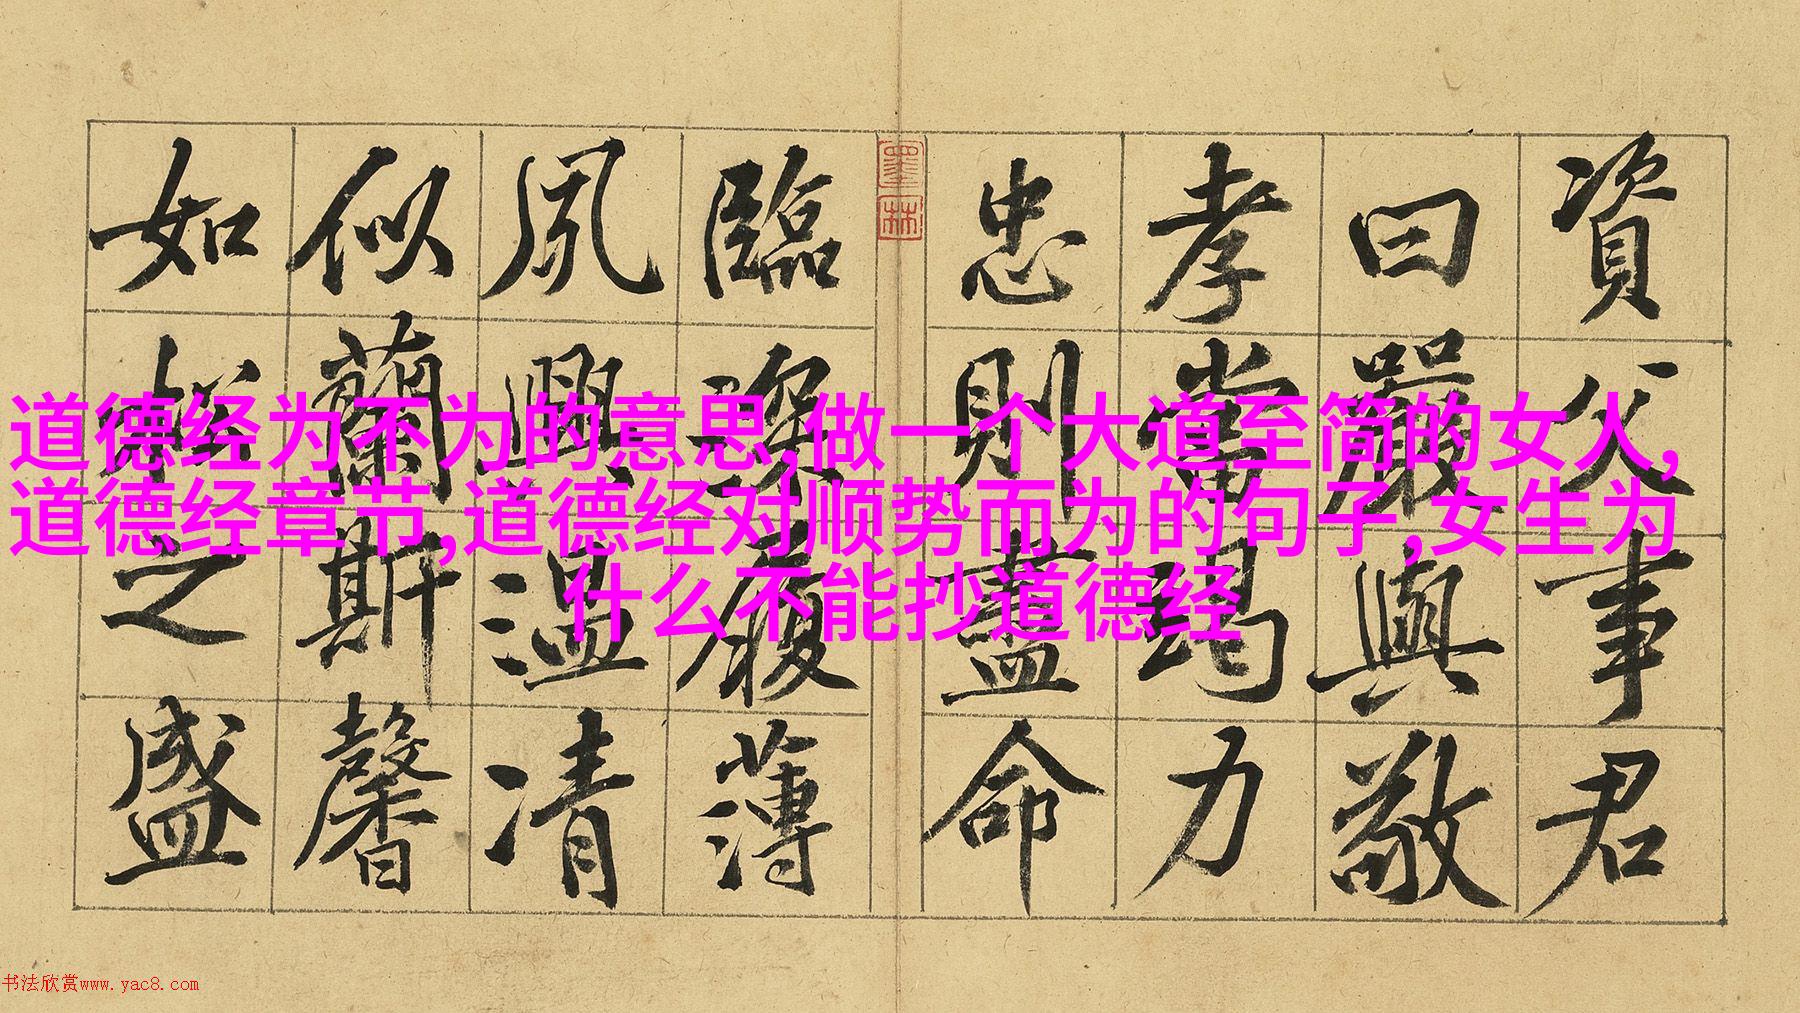 資父事君
曰嚴與敬
孝當竭力
忠則盡命
臨深履薄
夙興温凊
似蘭斯馨
如松之盛
墨林
道德经为不为的意思,做一个大道至简的女人,
道德经章节,道德经对顺势而为的句子,女生为
什么不能抄道德经
书法欣赏www.yac8.com